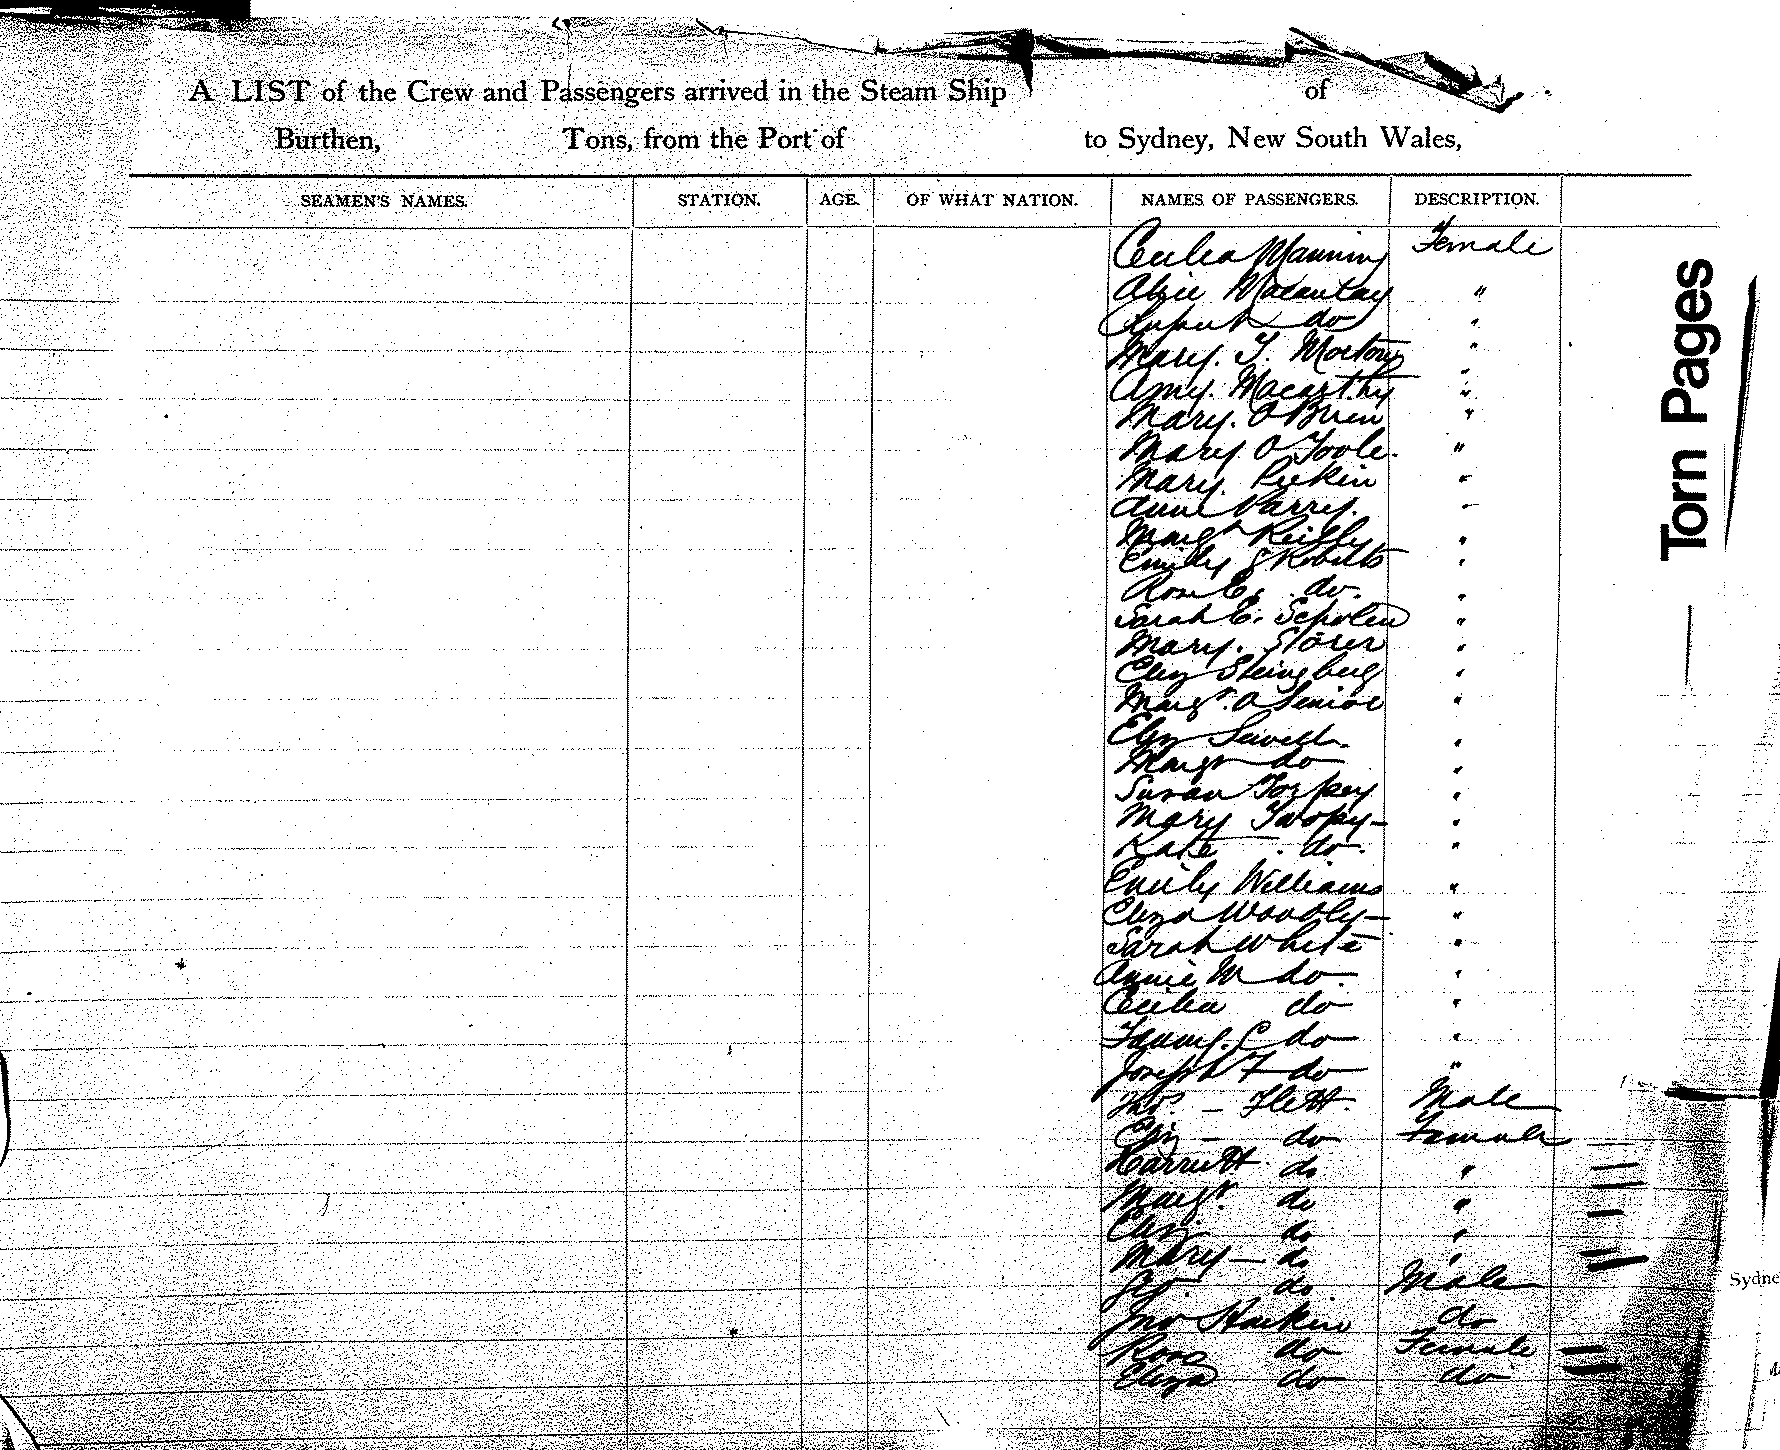 A LIST of the Crew and Passengers arrived in the Steam Ship of
Burthen, Tons, from the Port of to Sydney, New South Wales,
SEAMEN'S NAMES. STATION. AGE. OF WHAT NATION. NAMES OF PASSENGERS. DESCRIPTION.
Cecilia Manning Female
Macaulay "
do "
Mary. T. "
Amy. Macarthy "
Mary. O'Brien "
Mary O'Toole. "
Mary. "
Anne "
Margt Reilly "
Emily S Roberts "
Rose E. do. "
Sarah E. "
Mary. Storer "
Eliz "
Margt. A Senior "
Eliz Sewell "
Margt do "
Susan Torpey "
Mary "
Kate . do. "
Emily Williams "
Eliza "
Sarah White "
Annie M do "
Cecilia do "
Fanny. C do "
Joseph F do "
– Flett. Male
Eliz – do Female
Harriett do "
Margt. do "
Eliz. do "
Mary – do "
do Male
Jno Harkin do
Rose do Female
Eliza do do
Torn Pages
Sydne